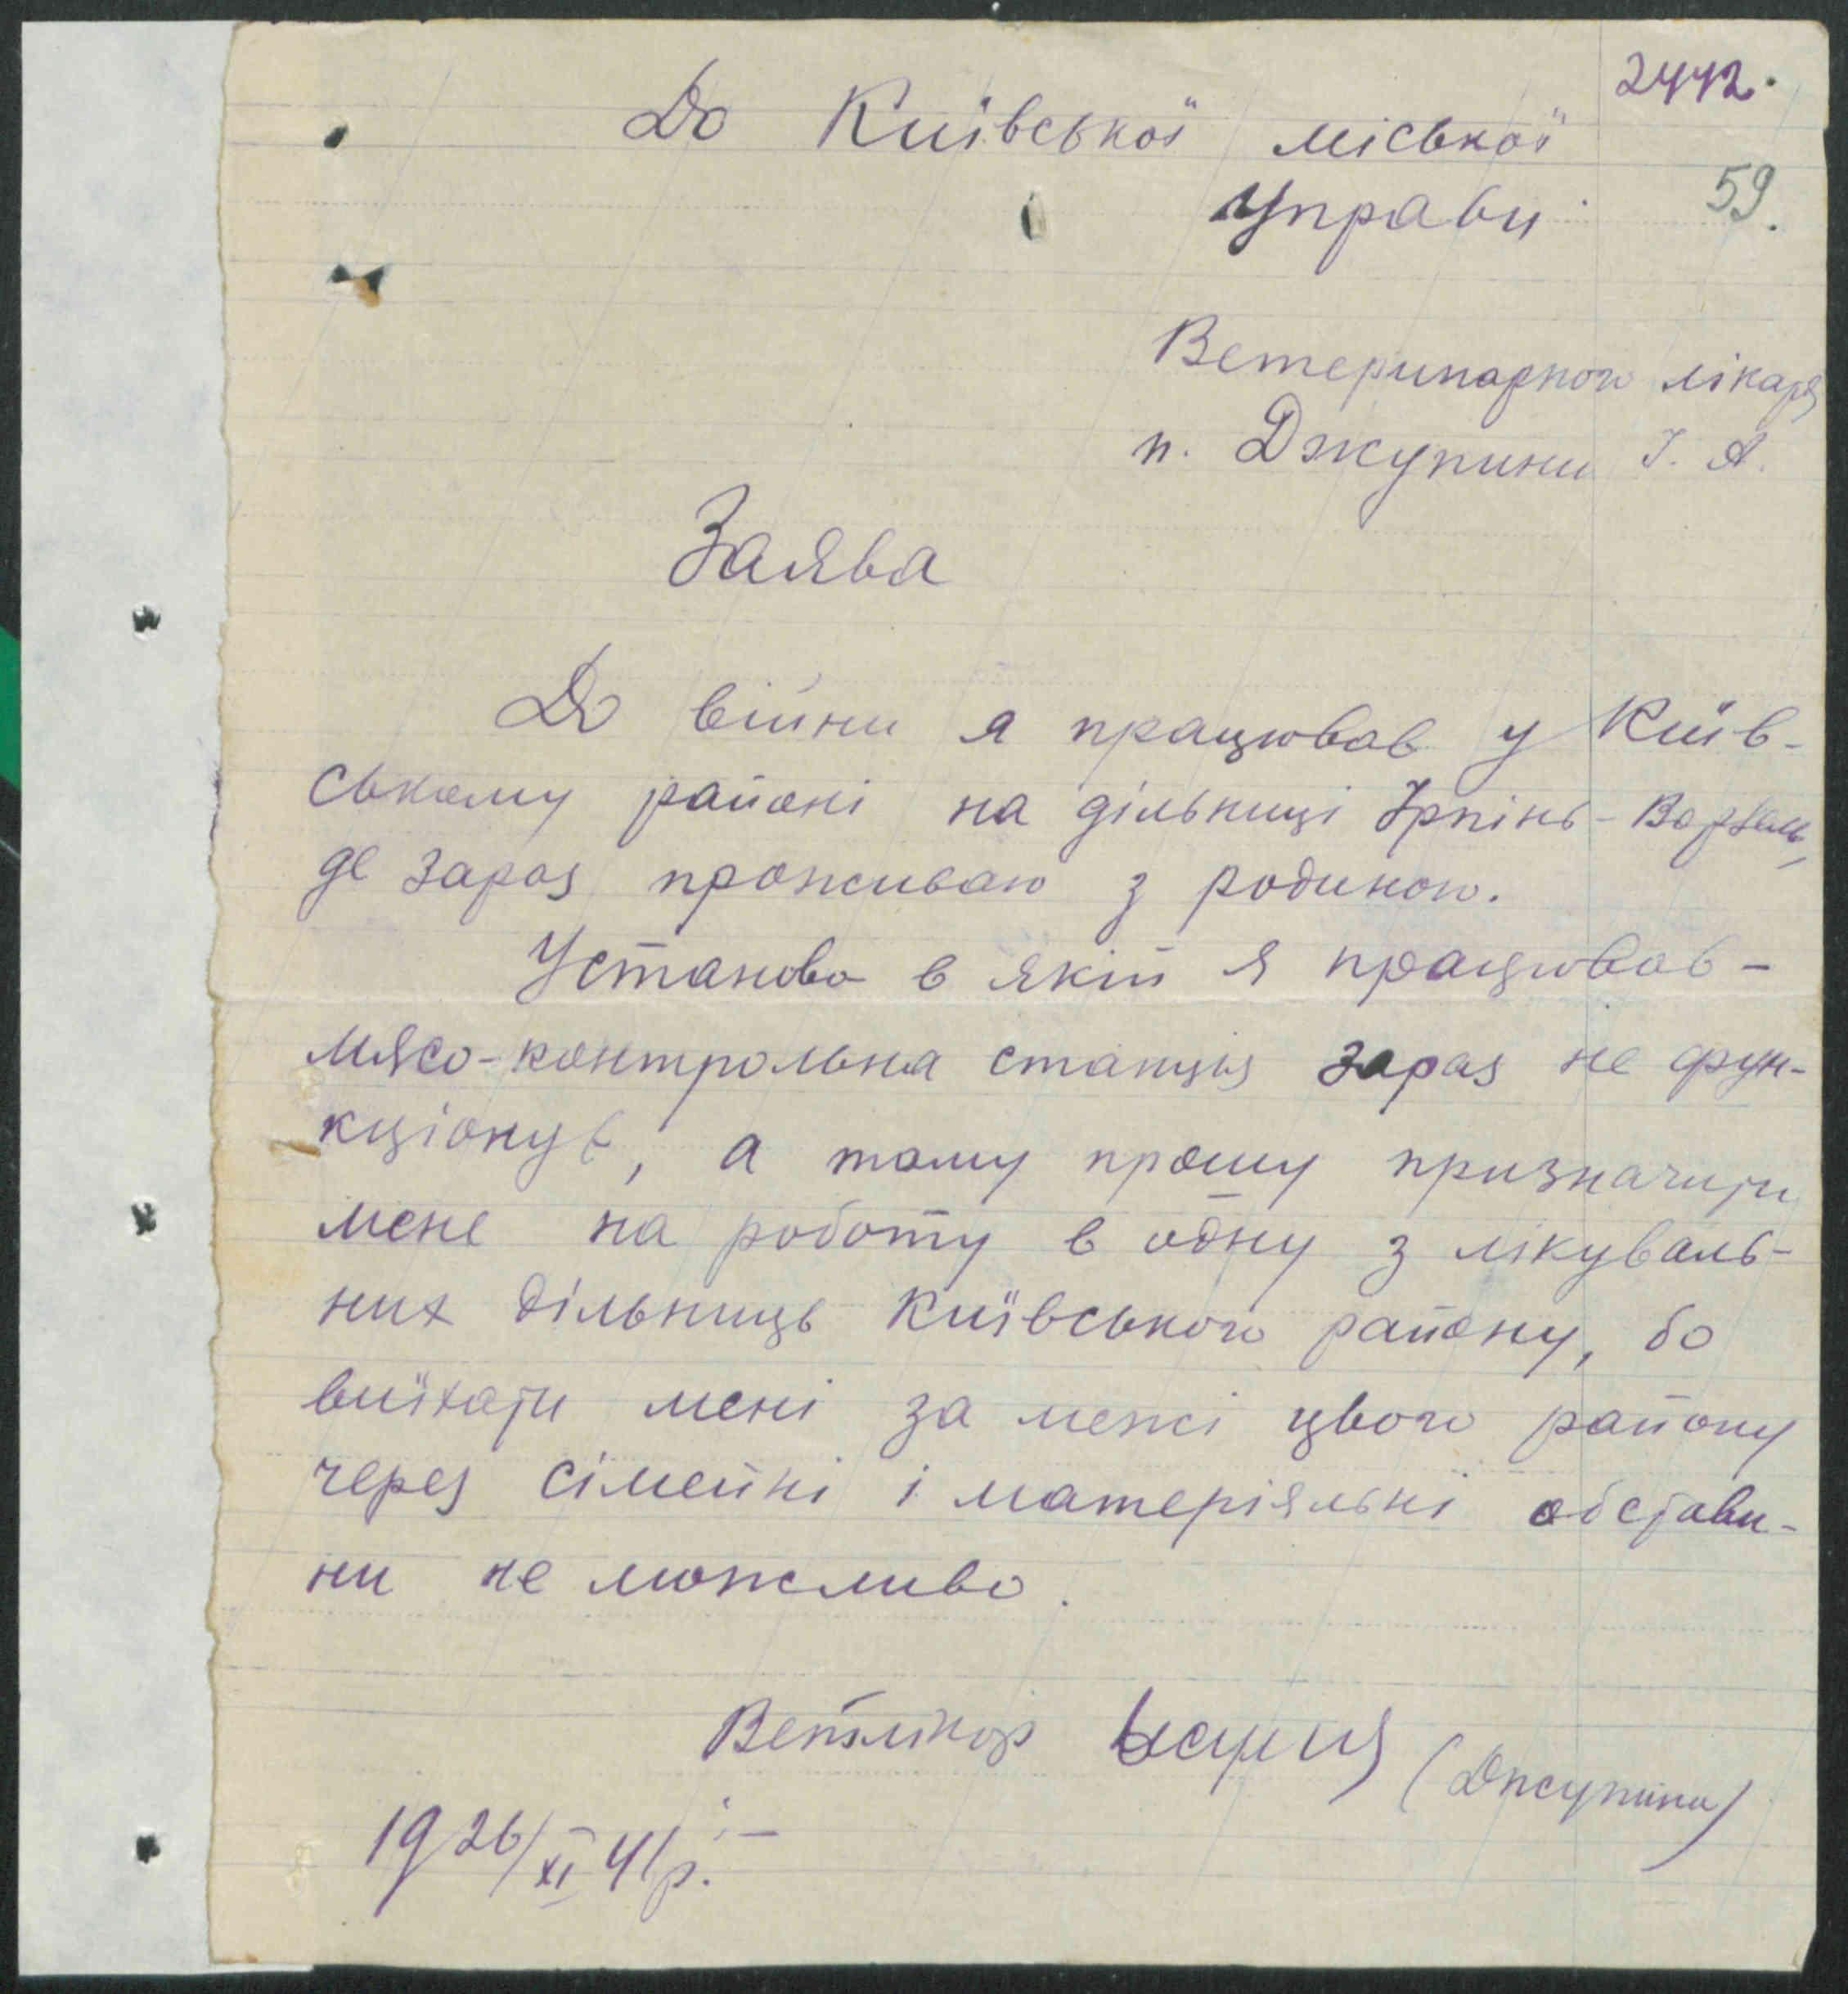 2442.
До Київської міської
Управи
59.
Ветеринарного лікаря
п. Джупини І. А.
Заява
До війни я працював у Київ-
ському районі на дільниці Ірпінь-Ворзель,
де зараз проживаю з родиною.
Установа в якій я працював -
мясо-контрольна станція зараз не фун-
кціонує, а тому прошу призначити
мене на роботу в одну з лікуваль-
них дільниць Київського району, бо
виїхати мені за межі цього району
через сімейні і матеріяльні обстави-
ни не можливо.
Ветлікар
(Джупина)
19 26/XI 41 р.